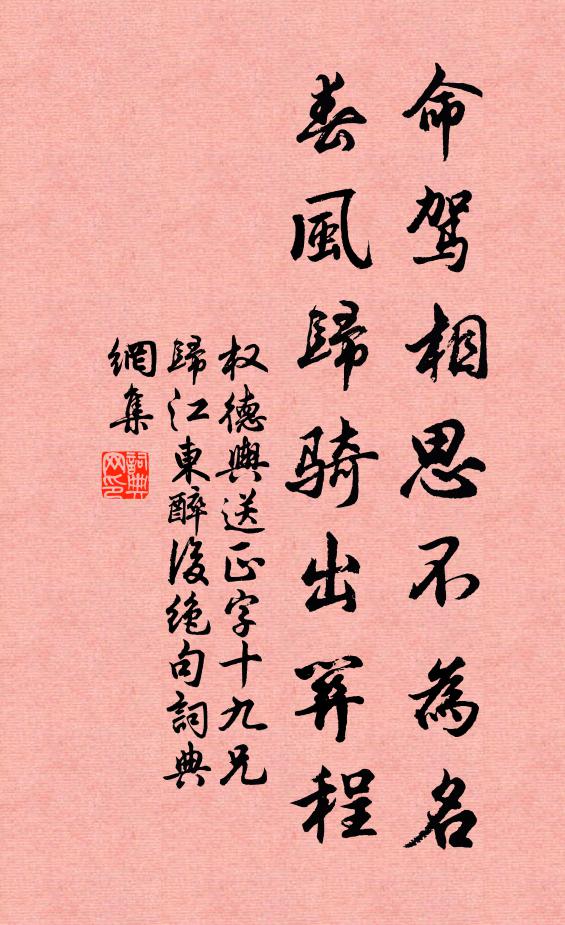 命駕相思不為名
春風歸騎出關程
权德輿送正字十九兄
歸江東醉後絕句詞典
網集
詞典
网印